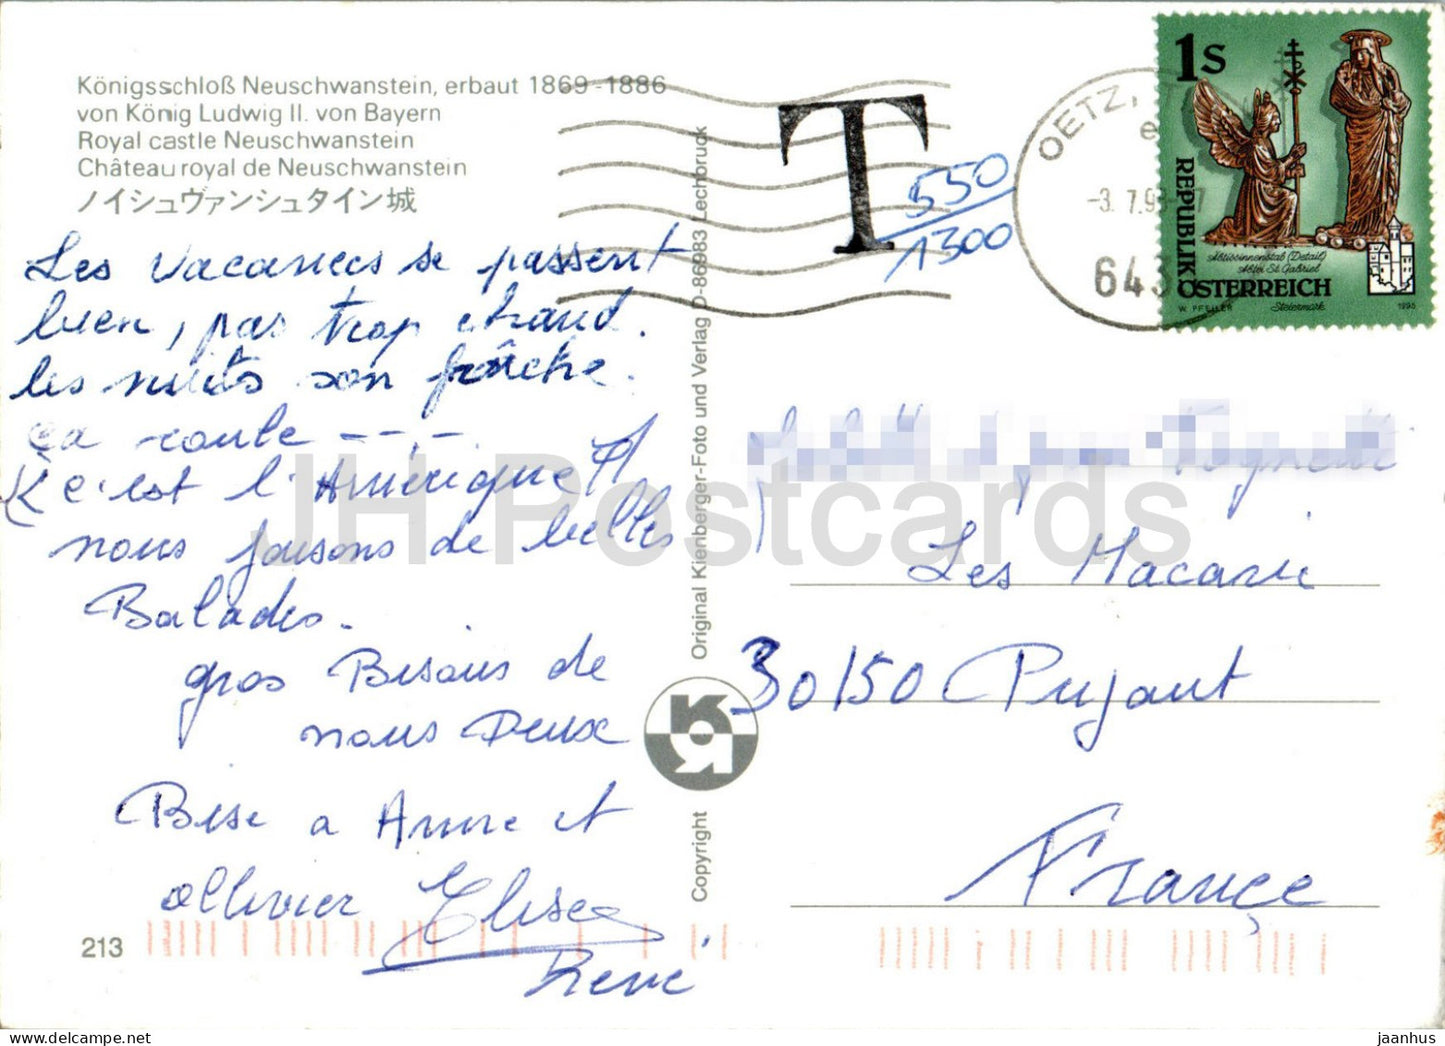 Königsschloß Neuschwanstein, erbaut 1869-1886
von König Ludwig II. von Bayern
Royal castle Neuschwanstein
Château royal de Neuschwanstein
ノイシュヴァンシュタイン城
Les vacances se passent
bien, pas trop chaud.
les nuits son fraîche.
ça roule ----.
(c'est l'Amérique)
nous faisons de belles
Balades.
gros Bisous de
nous Deux
Bise a Anne et
ollivier Elise
René
213
Original Kienberger-Foto und Verlag D-86983 Lechbruck
Copyright
T
550
1300
OETZ,
-3.7.9
643
1S
REPUBLIK
ÖSTERREICH
Äbtissinnenstab (Detail)
Abtei St. Gabriel
Steiermark
W. PFEILER
1995
Les Macarie
30150 Pujaut
France
JH Postcards
jaanhus